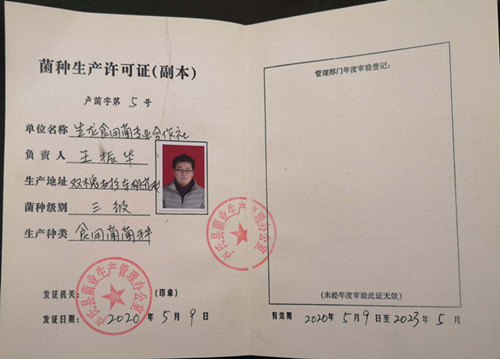 菌种生产许可证(副本)
卢菌字第 5 号
单位名称 生龙食用菌专业合作社
负责人 王振华
生产地址 双槐树
菌种级别 三级
生产种类 食用菌菌种
发证机关: (印章)
发证日期: 2020年5月9日
卢氏县菌业生产管理办公室
管理部门年度审验登记:
卢氏县菌业生产管理办公室
(未经年度审验此证无效)
有效期 2020年5月9日至2023年5月